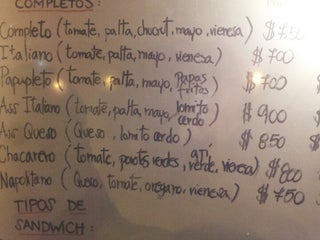 COMPLETOS:
Completo (tomate, palta, chucrut, mayo, vienesa) $ 750
Italiano (tomate, palta, mayo, vienesa) $ 700
Papupleto (tomate, palta, mayo, Papas fritas $ 700
Ass Italiano (tomate, palta, mayo, lomito cerdo) $ 900
Ass Queso (Queso, lomito cerdo) $ 850
Chacarero (tomate, porotos verdes, ají verde, vienesa) $ 800
Napolitano (Queso, tomate, oregano, vienesa) $ 750
TIPOS DE
SANDWICH: